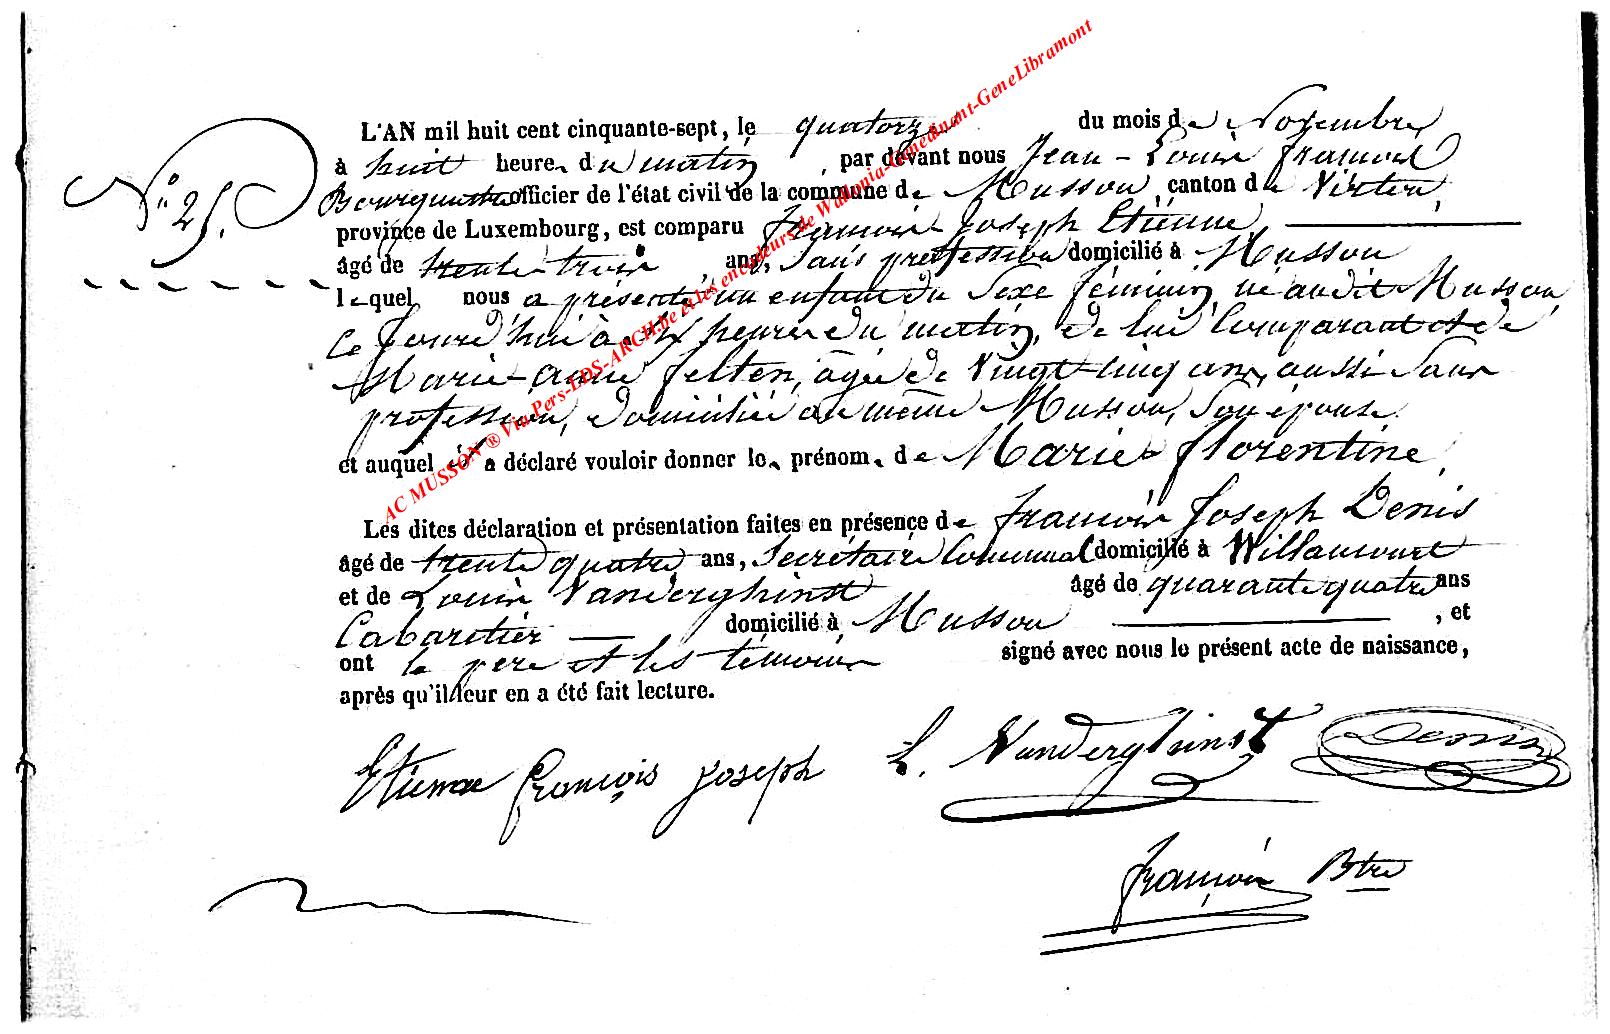 L'AN mil huit cent cinquante-sept, le quatorze du mois de Novembre
à huit heures du matin par devant nous Jean-Louis François
Bourgmestre officier de l'état civil de la commune de Musson canton de Virton,
province de Luxembourg, est comparu François Joseph Etienne
âgé de trente-trois ans, sans proffession domicilié à Musson
lequel nous a présenté un enfant du sexe féminin, né audit Musson
ce jourd'hui à six heures du matin, de lui Comparant et de
Marie-Anne Felten, âgée de vingt-cinq ans, aussi sans
profession, domiciliée au même Musson, son épouse
et auquel il a déclaré vouloir donner le prénom de Marie florentine.
N° 25.
Les dites déclaration et présentation faites en présence de François Joseph Denis
âgé de trente quatre ans, Secrétaire Communal domicilié à Willancourt
et de Louis Vanderghinst âgé de quarante quatre ans
Cabaretier domicilié à Musson , et
ont le père et les témoins signé avec nous le présent acte de naissance,
après qu'il leur en a été fait lecture.
Etienne françois joseph L. Vanderghinst Denis
François Btre
AC MUSSON ® Via Pers-LDS-ARCH.be et les encodeurs de Wallonia-Genedinant-GeneLibramont